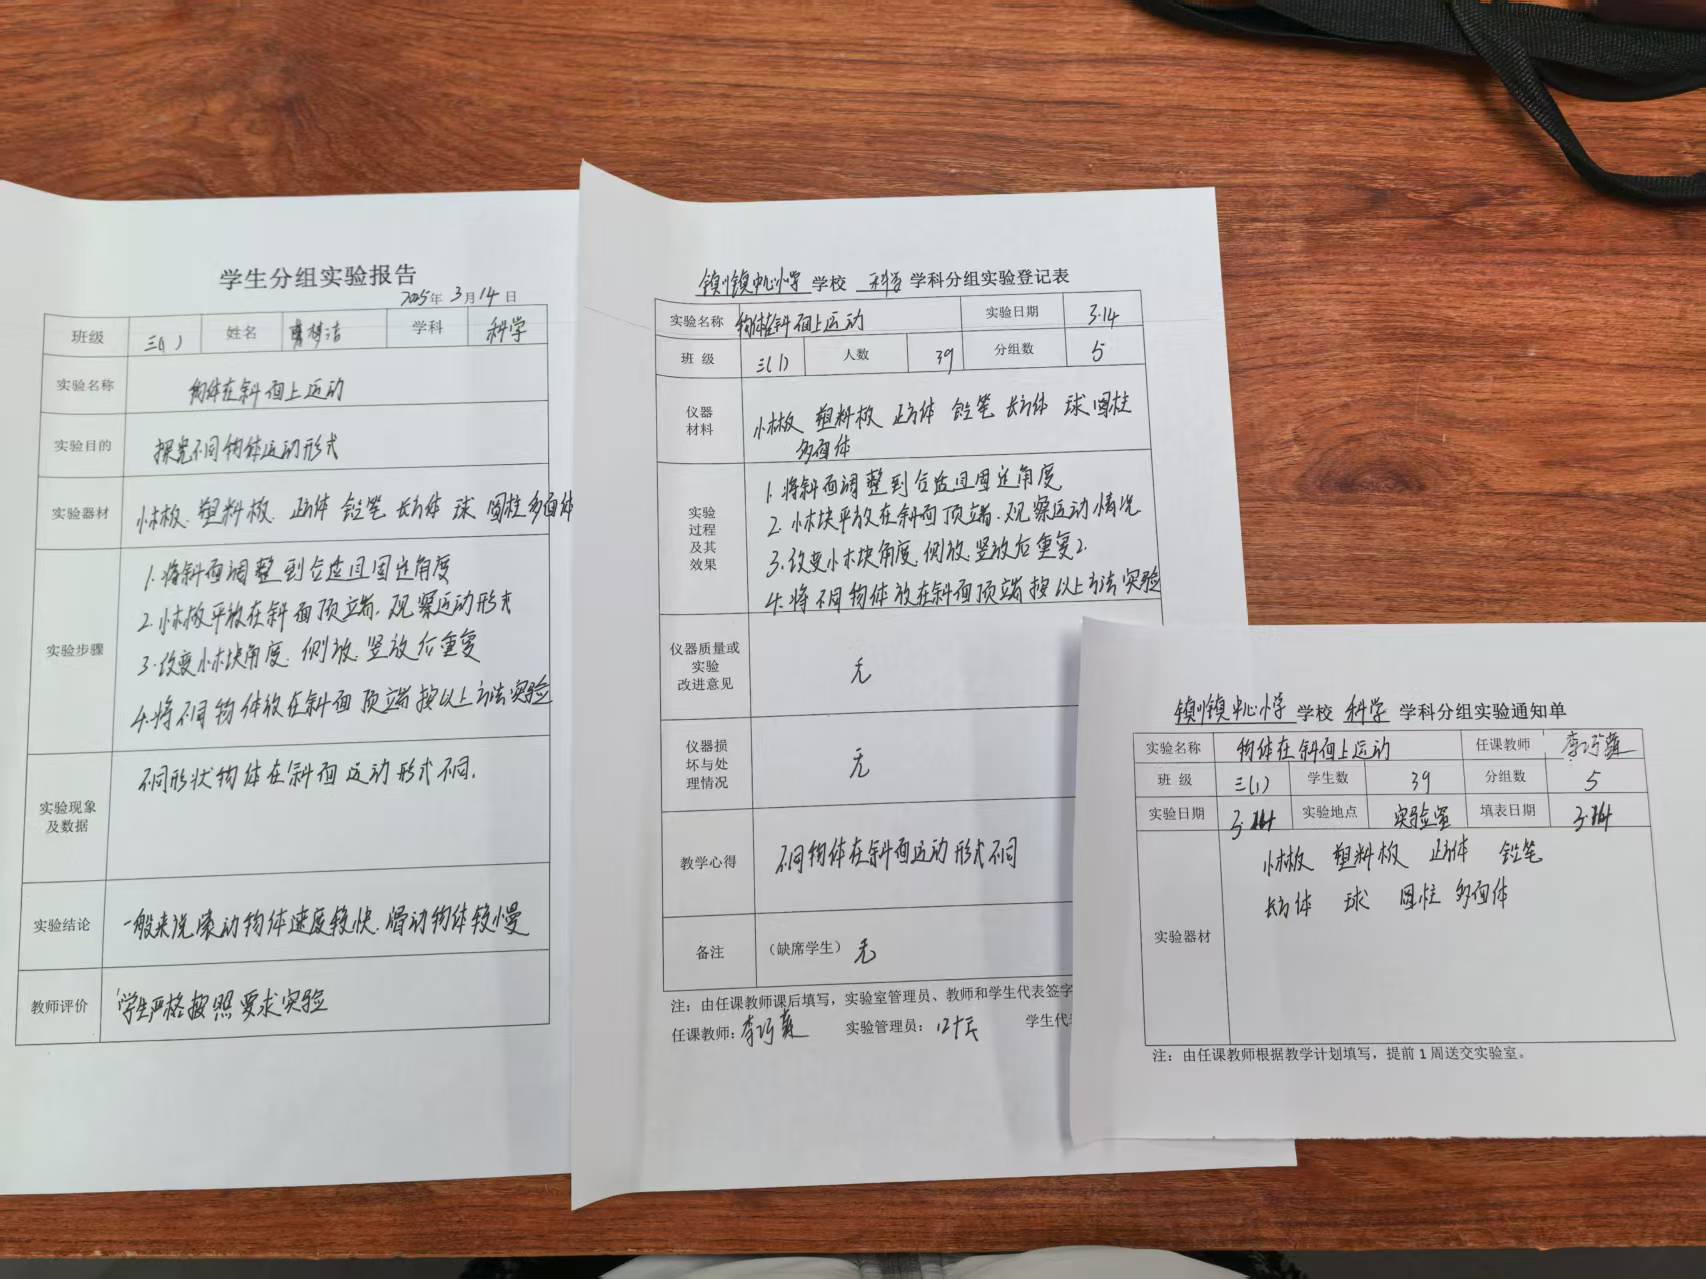 学生分组实验报告
2025年 3月14日
班级 三(1) 姓名 学科 科学
实验名称 物体在斜面上运动
实验目的 探究不同物体运动形式
实验器材 小木板 塑料板 正方体 铅笔 长方体 球 圆柱 多面体
实验步骤
1.将斜面调整到合适且固定角度
2.小木板平放在斜面顶端.观察运动形式
3.改变小木块角度.侧放.竖放后重复
4.将不同物体放在斜面顶端按以上方法实验
实验现象
及数据
不同形状物体在斜面运动形式不同.
实验结论 一般来说滚动物体速度较快.滑动物体较慢
教师评价 学生严格按照要求实验
镇川镇中心小学 学校 科学 学科分组实验登记表
实验名称 物体在斜面上运动 实验日期 3.14
班 级 三(1) 人数 39 分组数 5
仪器
材料
小木板 塑料板 正方体 铅笔 长方体 球 圆柱
多面体
实验
过程
及其
效果
1.将斜面调整到合适且固定角度
2.小木块平放在斜面顶端.观察运动情况
3.改变小木块角度.侧放.竖放后重复2.
4.将不同物体放在斜面顶端按以上方法实验
仪器质量或
实验
改进意见
无
仪器损
坏与处
理情况
无
教学心得 不同物体在斜面运动形式不同
备注 (缺席学生) 无
注：由任课教师课后填写，实验室管理员、教师和学生代表签字
任课教师： 实验管理员： 学生代
镇川镇中心小学 学校 科学 学科分组实验通知单
实验名称 物体在斜面上运动 任课教师
班 级 三(1) 学生数 39 分组数 5
实验日期 3.14 实验地点 实验室 填表日期 3.14
实验器材
小木板 塑料板 正方体 铅笔
长方体 球 圆柱 多面体
注：由任课教师根据教学计划填写，提前1周送交实验室。